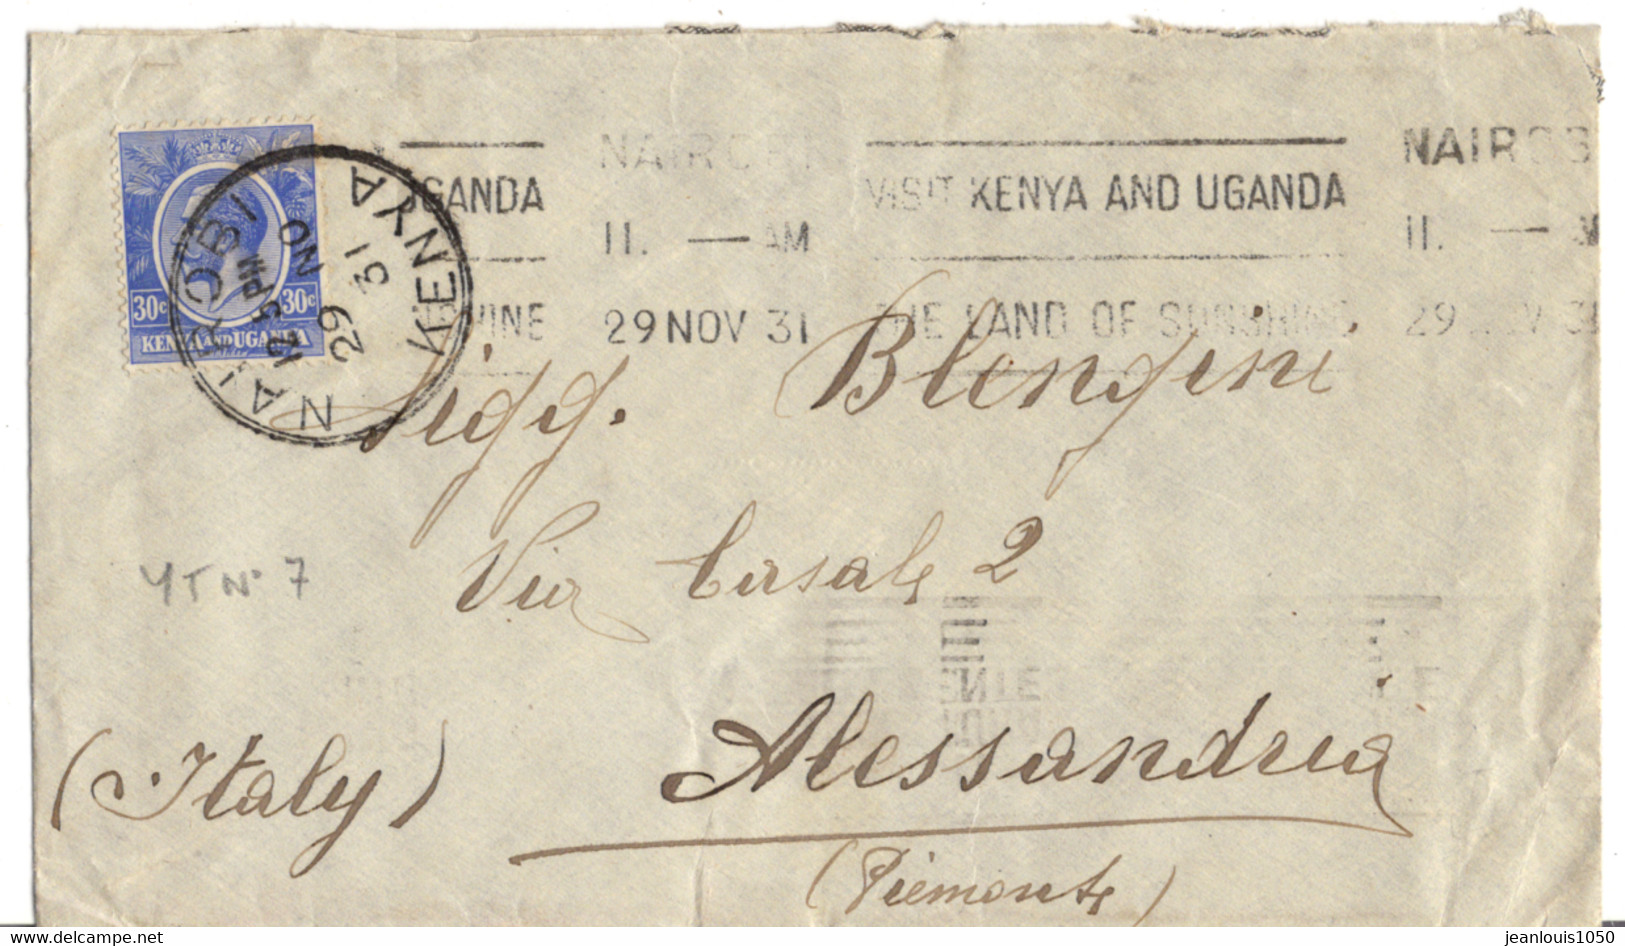 30c 30c
KENYA AND UGANDA
NAIROBI KENYA
12 5 PM
29 NO
31
GANDA
HINE
NAIROBI
11. — AM
29 NOV 31
VISIT KENYA AND UGANDA
THE LAND OF SUNSHINE
NAIROB
11. —
29 NOV 3
Sigg. Blengini
Via Casale 2
YT N° 7
Alessandria
(Italy)
(Piemonte)
www.delcampe.net
jeanlouis1050